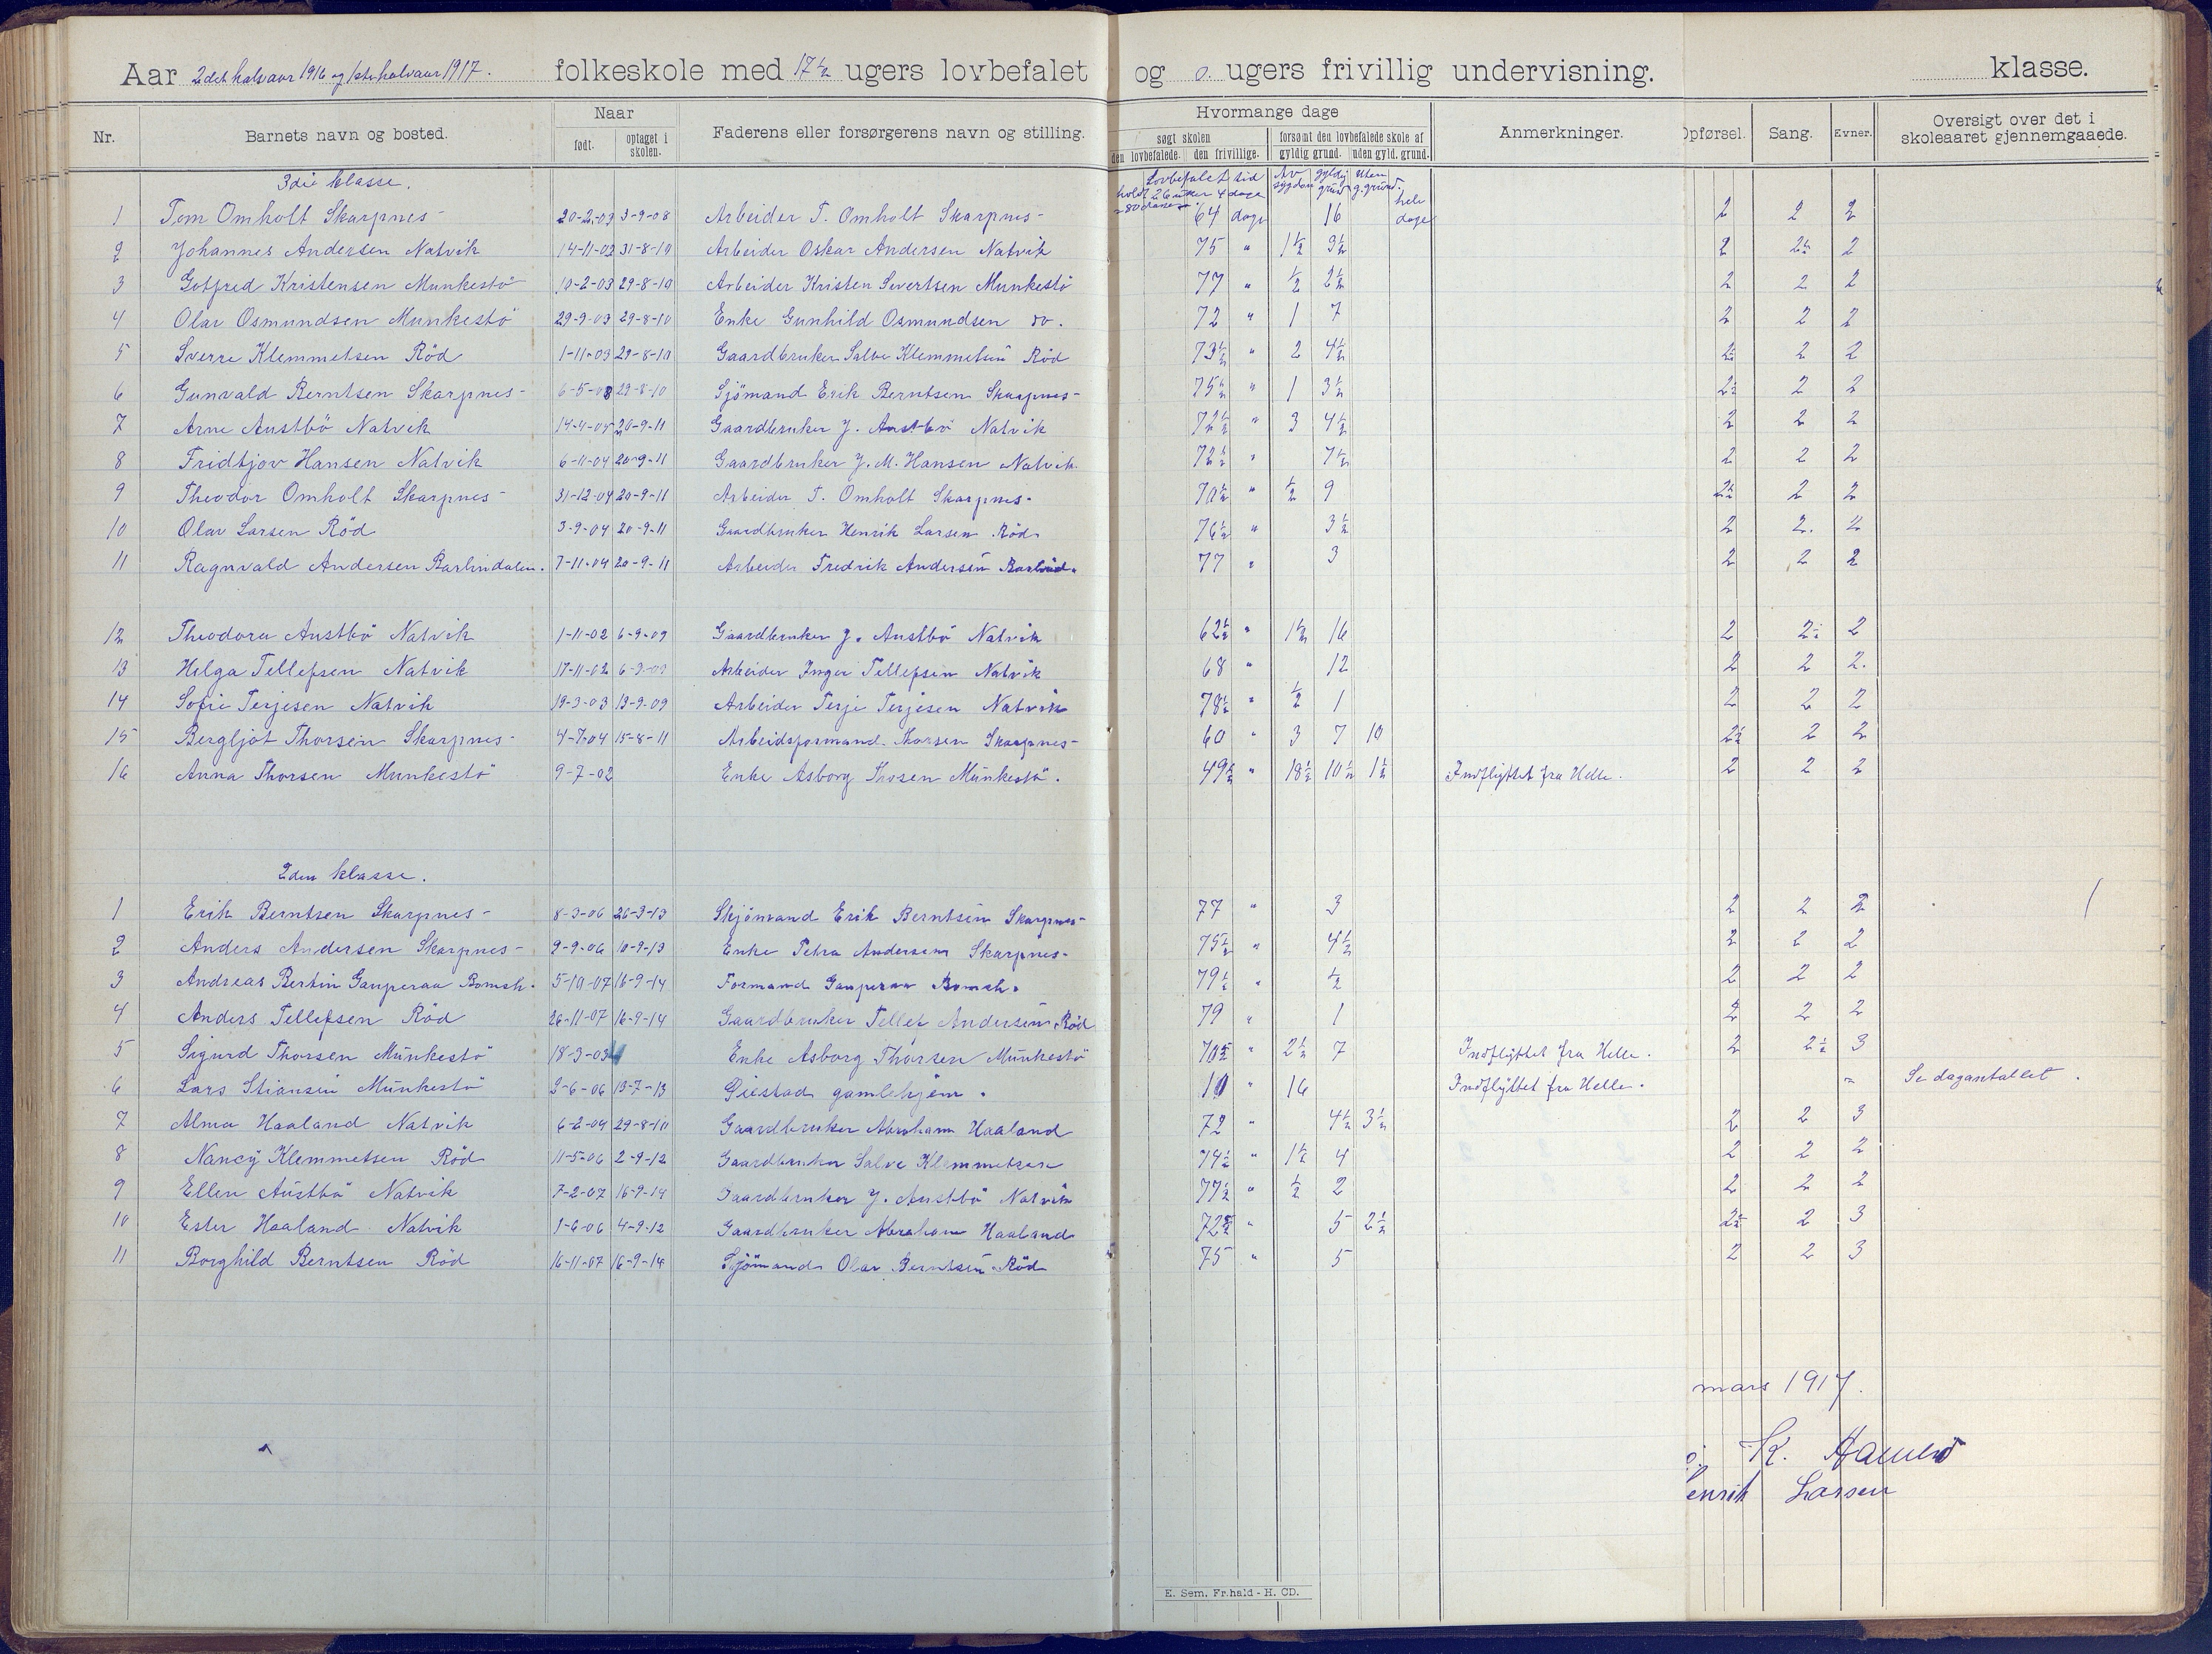 Aar 2det halvaar 1916 og 1ste halvaar 1917. folkeskole med 17½ ugers lovbefalet og 0 ugers frivillig undervisning. klasse.
Nr. Barnets navn og bosted. Naar født. optaget i skolen. Faderens eller forsørgerens navn og stilling. Hvormange dage søgt skolen den lovbefalede. den frivillige. forsømt den lovbefalede skole af gyldig grund. uden gyld. grund. Anmerkninger. Opførsel. Sang. Evner. Oversigt over det i skoleaaret gjennemgaaede.
3die klasse. Lovbefalet tid Av sygdom gyldig grund Uten g. grund.
1 Tom Omholt Skarpnes 20-2-03 3-9-08 Arbeider T. Omholt Skarpnes 64 dage 16 hele dage 2 2 2
2 Johannes Andersen Natvik 14-11-02 31-8-10 Arbeider Oskar Andersen Natvik 75 " 1½ 3½ 2 2½ 2
3 Gotfred Kristensen Munkestö 10-2-03 29-8-10 Arbeider Kristen Severtsen Munkestö 77 " ½ 2½ 2 2 2
4 Olav Osmundsen Munkestö 29-9-03 29-8-10 Enke Gunhild Osmundsen do. 72 " 1 7 2 2 2
5 Sverre Klemmetsen Röd 1-11-03 29-8-10 Gaardbruker Salve Klemmetsen Röd 73½ " 2 4½ 2½ 2 2
6 Gunvald Berntsen Skarpnes 6-5-03 29-8-10 Sjömand Erik Berntsen Skarpnes 75½ " 1 3½ 2½ 2 2
7 Arne Austbö Natvik 14-4-04 20-9-11 Gaardbruker J. Austbö Natvik 72½ " 3 4½ 2 2 2
8 Fridtjov Hansen Natvik 6-11-04 20-9-11 Gaardbruker J. M. Hansen Natvik. 72½ " 7½ 2 2 2
9 Theodor Omholt Skarpnes 31-12-04 20-9-11 Arbeider T. Omholt Skarpnes 70½ " ½ 9 2½ 2 2
10 Olav Larsen Röd 3-9-04 20-9-11 Gaardbruker Henrik Larsen Röd 76½ " 3½ 2 2. 2
11 Ragnvald Andersen Barlindalen. 7-11-04 20-9-11 Arbeider Fredrik Andersen Barlind. 77 " 3 2 2 2
12 Theodora Austbö Natvik 1-11-02 6-9-09 Gaardbruker J. Austbö Natvik 62½ " 1½ 16 2 2½ 2
13 Helga Tellefsen Natvik 17-11-02 6-9-09 Arbeider Inger Tellefsen Natvik 68 " 12 2 2 2.
14 Sofie Terjesen Natvik 19-3-03 13-9-09 Arbeider Terje Terjesen Natvik 78½ " ½ 1 2 2 2
15 Bergljot Thorsen Skarpnes 4-7-04 15-8-11 Arbeidsformand Thorsen Skarpnes 60 " 3 7 10 2½ 2 2
16 Anna Thorsen Munkestö 9-7-02 Enke Asborg Thosen Munkestö. 49½ " 18½ 10½ 1½ Indflyttet fra Helle. 2 2 2
2den klasse.
1 Erik Berntsen Skarpnes 8-3-06 26-3-13 Skjömand Erik Berntsen Skarpnes 77 " 3 2 2 2
2 Anders Andersen Skarpnes 9-9-06 10-9-13 Enke Petra Andersen Skarpnes 75½ " 4½ 2 2 2
3 Andreas Bertin Gauperaa Bomsh. 5-10-07 16-9-14 Formand Gauperaa Bomsh. 79½ " ½ 2 2 2
4 Anders Tellefsen Röd 26-11-07 16-9-14 Gaardbruker Tellef Andersen Röd 79 " 1 2 2 2
5 Sigurd Thorsen Munkestö 18-3-03 Enke Asborg Thorsen Munkestö 70½ " 2½ 7 Indflyttet fra Helle. 2 2½ 3
6 Lars Stiansen Munkestö 3-6-06 13-7-13 gamlehjem. 10 " 16 Indflyttet fra Helle. " Se dagantallet.
7 Alma Haaland Natvik 6-2-04 29-8-10 Gaardbruker Abraham Haaland 72 " 4½ 3½ 2 2 3
8 Nancy Klemmetsen Röd 11-5-06 2-9-12 Gaardbruker Salve Klemmetsen 74½ " 1½ 4 2 2 2
9 Ellen Austbö Natvik 7-2-07 16-9-14 Gaardbruker J. Austbö Natvik 77½ " ½ 2 2 2 2
10 Ester Haaland Natvik 1-6-06 4-9-12 Gaardbruker Abraham Haaland 72½ " 5 2½ 2½ 2 3
11 Borghild Berntsen Röd 16-11-07 16-9-14 Sjömand Olav Berntsen Röd 75 " 5 2 2 3
mars 1917.
K.
enrik Larsen
E. Sem, Fr.hald - H. CD.